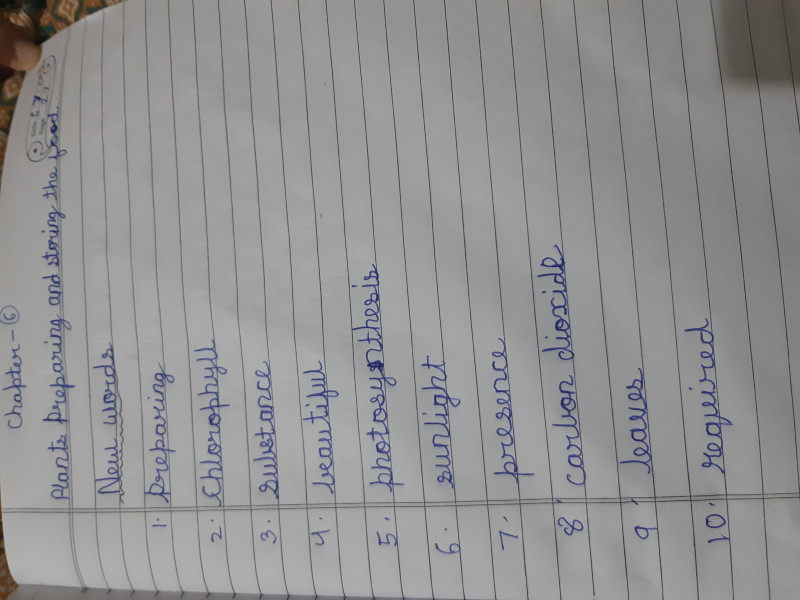 Chapter-6
Plants preparing and storing the food
New words
1. preparing
2. Chlorophyll
3. substance
4. beautiful
5. photosynthesis
6. sunlight
7. presence
8. carbon dioxide
9. leaves
10. required